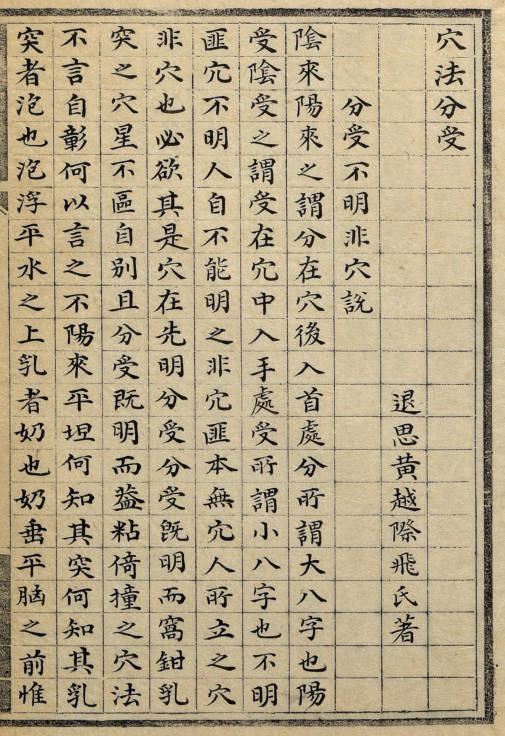 穴法分受
退思黃越際飛氏著
分受不明非穴說
陰來陽來之謂分在穴後入首處分所謂大八字也陽
受陰受之謂受在穴中入手處受所謂小八字也不明
匪穴不明人自不能明之非穴匪本無穴人所立之穴
非穴也必欲其是穴在先明分受分受既明而窩鉗乳
突之穴星不區自别且分受既明而葢粘倚撞之穴法
不言自彰何以言之不陽來平坦何知其突何知其乳
突者泡也泡浮平水之上乳者奶也奶垂平腦之前惟